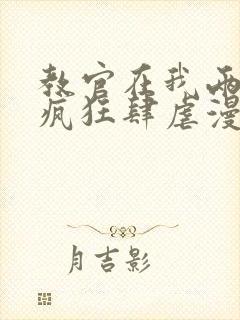 教官在我两
疯狂肆虐漫
月吉影